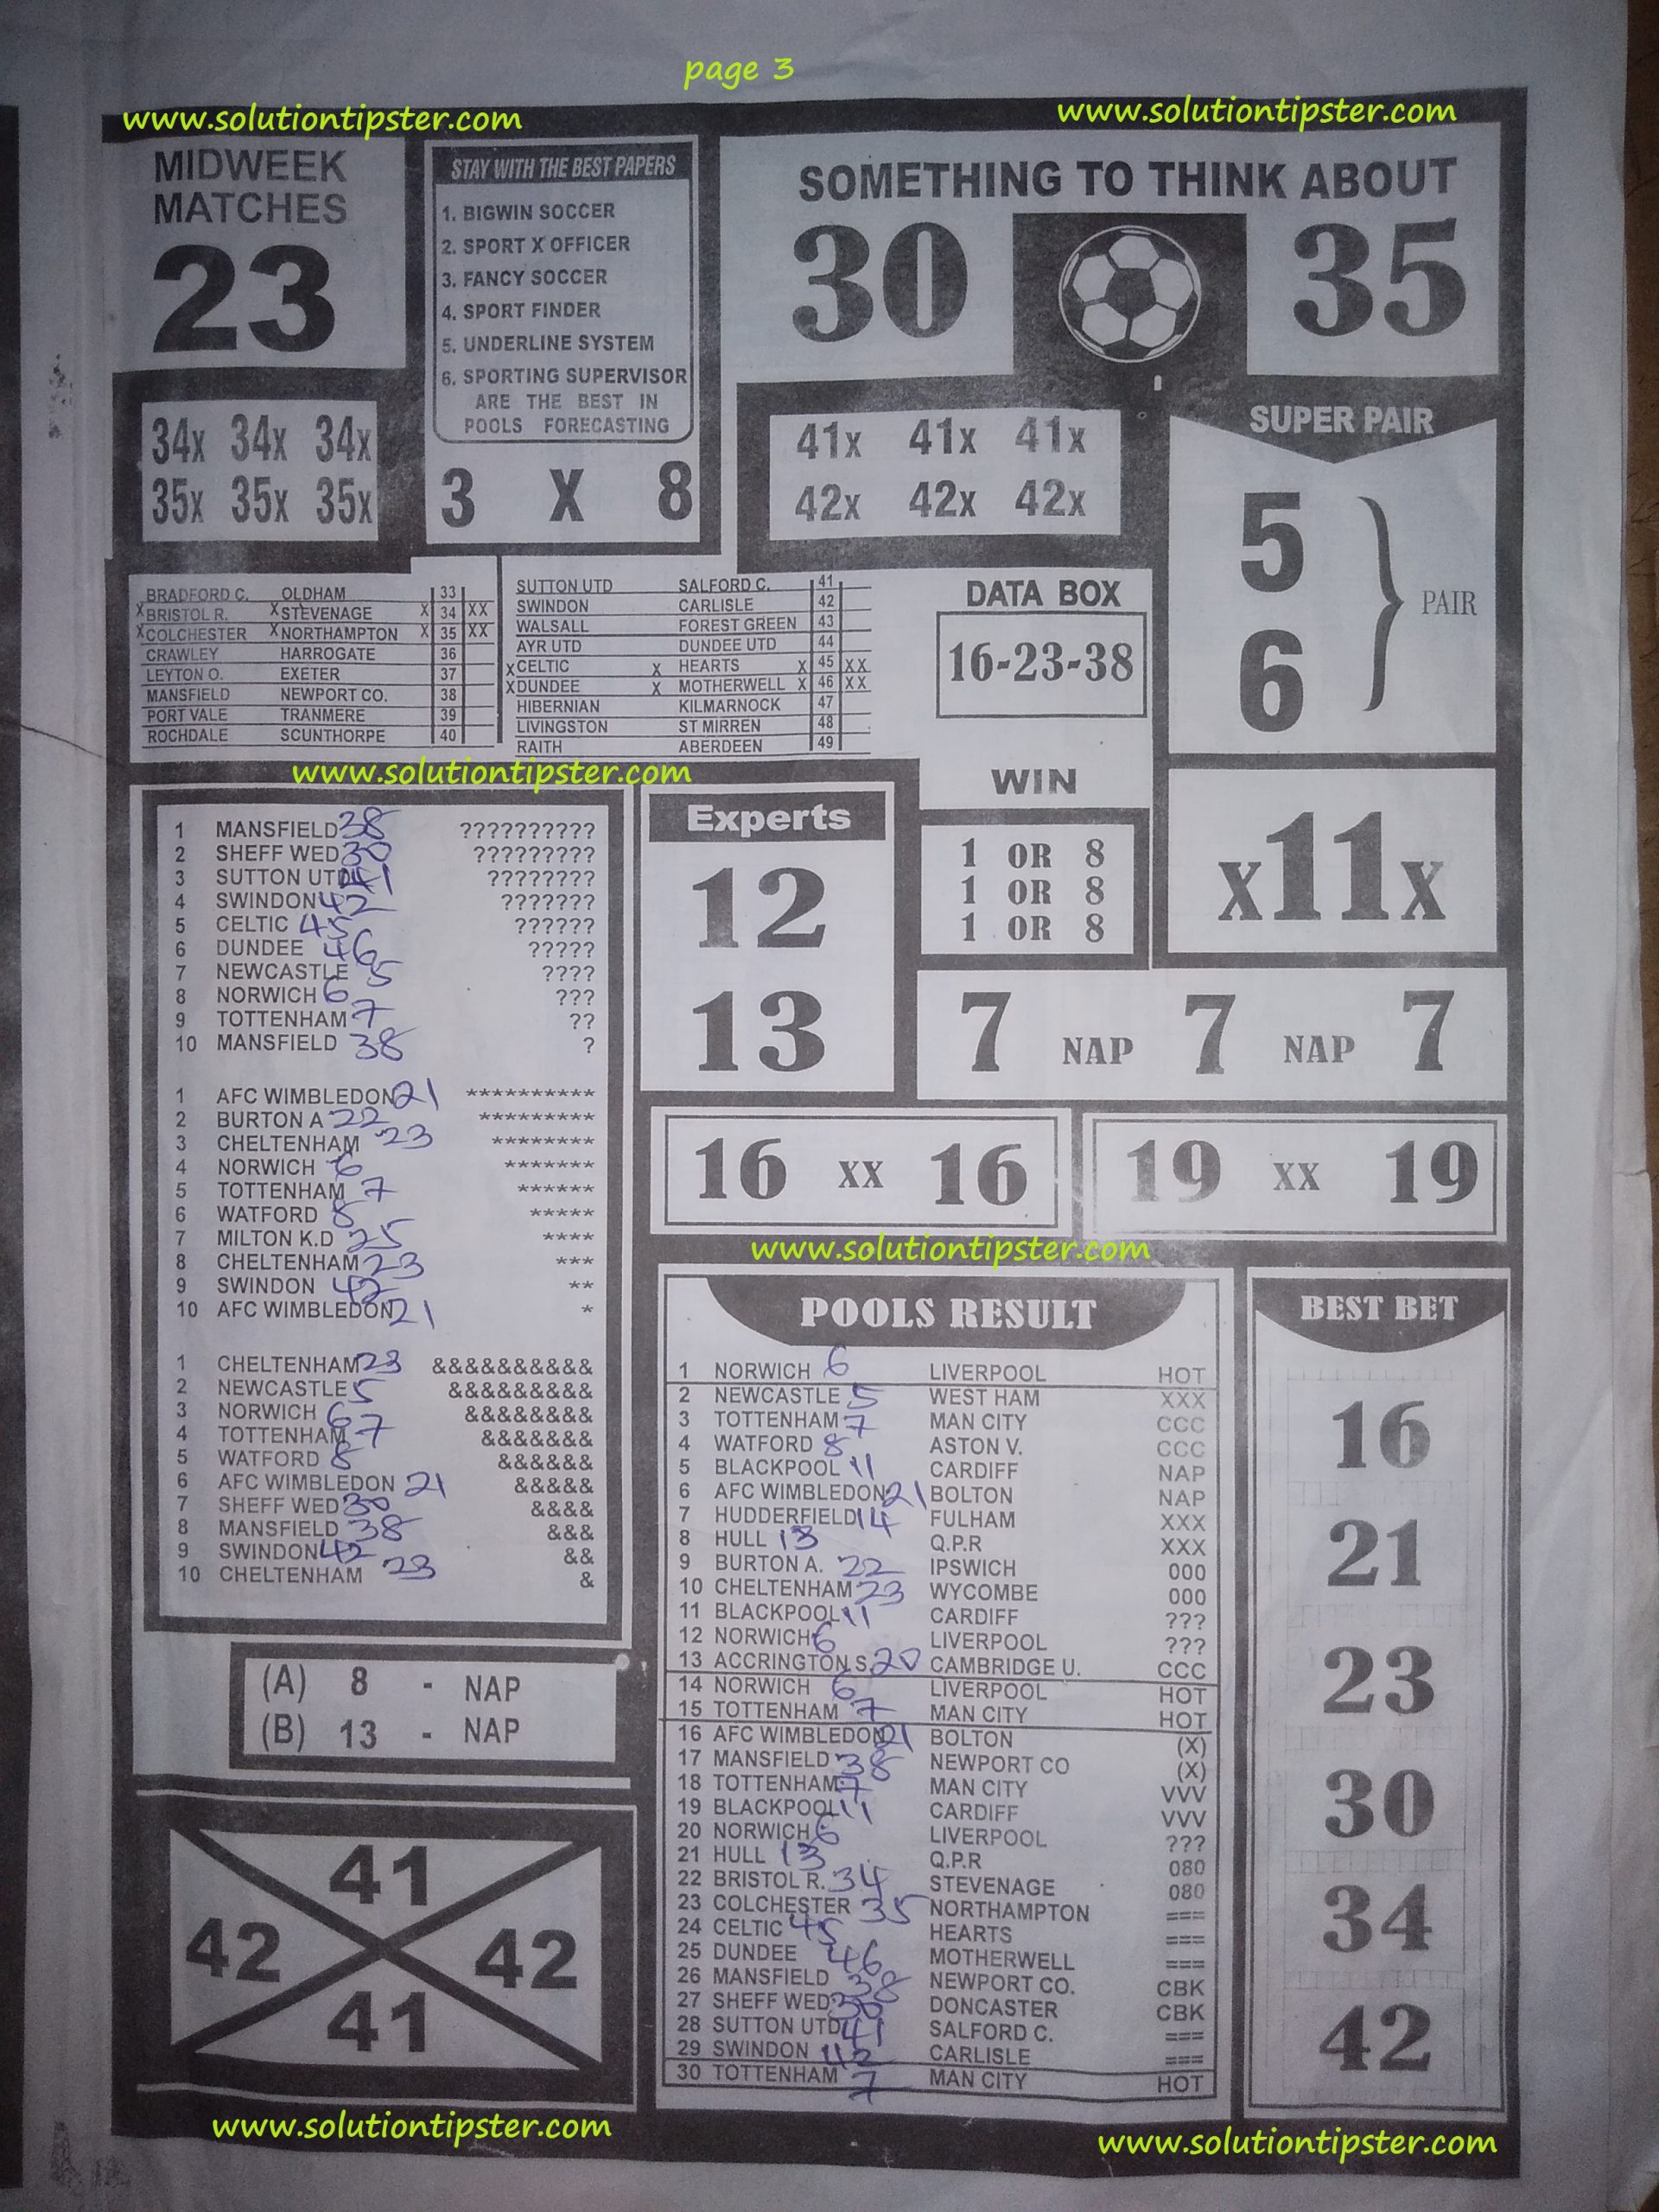 page 3
www.solutiontipster.com
www.solutiontipster.com
MIDWEEK
MATCHES
23
STAY WITH THE BEST PAPERS
1. BIGWIN SOCCER
2. SPORT X OFFICER
3. FANCY SOCCER
4. SPORT FINDER
5. UNDERLINE SYSTEM
6. SPORTING SUPERVISOR
ARE THE BEST IN
POOLS FORECASTING
3 X 8
SOMETHING TO THINK ABOUT
30 35
34x 34x 34x
35x 35x 35x
41x 41x 41x
42x 42x 42x
SUPER PAIR
5
6
PAIR
BRADFORD C. OLDHAM 33
X BRISTOL R. X STEVENAGE X 34 XX
X COLCHESTER X NORTHAMPTON X 35 XX
CRAWLEY HARROGATE 36
LEYTON O. EXETER 37
MANSFIELD NEWPORT CO. 38
PORT VALE TRANMERE 39
ROCHDALE SCUNTHORPE 40
SUTTON UTD SALFORD C. 41
SWINDON CARLISLE 42
WALSALL FOREST GREEN 43
AYR UTD DUNDEE UTD 44
X CELTIC X HEARTS X 45 XX
X DUNDEE X MOTHERWELL X 46 XX
HIBERNIAN KILMARNOCK 47
LIVINGSTON ST MIRREN 48
RAITH ABERDEEN 49
DATA BOX
16-23-38
www.solutiontipster.com
1 MANSFIELD 38 ??????????
2 SHEFF WED 30 ?????????
3 SUTTON UTD 41 ????????
4 SWINDON 42 ???????
5 CELTIC 45 ??????
6 DUNDEE 46 ?????
7 NEWCASTLE 5 ????
8 NORWICH 6 ???
9 TOTTENHAM 7 ??
10 MANSFIELD 38 ?
1 AFC WIMBLEDON 21 **********
2 BURTON A 22 *********
3 CHELTENHAM 23 ********
4 NORWICH 6 *******
5 TOTTENHAM 7 ******
6 WATFORD 8 *****
7 MILTON K.D 25 ****
8 CHELTENHAM 23 ***
9 SWINDON 42 **
10 AFC WIMBLEDON 21 *
1 CHELTENHAM 23 &&&&&&&&&&
2 NEWCASTLE 5 &&&&&&&&&
3 NORWICH 6 &&&&&&&&
4 TOTTENHAM 7 &&&&&&&
5 WATFORD 8 &&&&&&
6 AFC WIMBLEDON 21 &&&&&
7 SHEFF WED 30 &&&&
8 MANSFIELD 38 &&&
9 SWINDON 42 &&
10 CHELTENHAM 23 &
Experts
12
13
WIN
1 OR 8
1 OR 8
1 OR 8
x11x
7 NAP 7 NAP 7
16 xx 16
19 xx 19
www.solutiontipster.com
(A) 8 - NAP
(B) 13 - NAP
41
42 42
41
POOLS RESULT
1 NORWICH 6 LIVERPOOL HOT
2 NEWCASTLE 5 WEST HAM XXX
3 TOTTENHAM 7 MAN CITY CCC
4 WATFORD 8 ASTON V. CCC
5 BLACKPOOL 11 CARDIFF NAP
6 AFC WIMBLEDON 21 BOLTON NAP
7 HUDDERFIELD 14 FULHAM XXX
8 HULL 13 Q.P.R XXX
9 BURTON A. 22 IPSWICH 000
10 CHELTENHAM 23 WYCOMBE 000
11 BLACKPOOL 11 CARDIFF ???
12 NORWICH 6 LIVERPOOL ???
13 ACCRINGTON S. 20 CAMBRIDGE U. CCC
14 NORWICH 6 LIVERPOOL HOT
15 TOTTENHAM 7 MAN CITY HOT
16 AFC WIMBLEDON 21 BOLTON (X)
17 MANSFIELD 38 NEWPORT CO (X)
18 TOTTENHAM 7 MAN CITY VVV
19 BLACKPOOL 11 CARDIFF VVV
20 NORWICH 6 LIVERPOOL ???
21 HULL 13 Q.P.R 080
22 BRISTOL R. 34 STEVENAGE 080
23 COLCHESTER 35 NORTHAMPTON ===
24 CELTIC 45 HEARTS ===
25 DUNDEE 46 MOTHERWELL ===
26 MANSFIELD 38 NEWPORT CO. CBK
27 SHEFF WED 30 DONCASTER CBK
28 SUTTON UTD 41 SALFORD C. ===
29 SWINDON 42 CARLISLE ===
30 TOTTENHAM 7 MAN CITY HOT
BEST BET
16
21
23
30
34
42
www.solutiontipster.com
www.solutiontipster.com